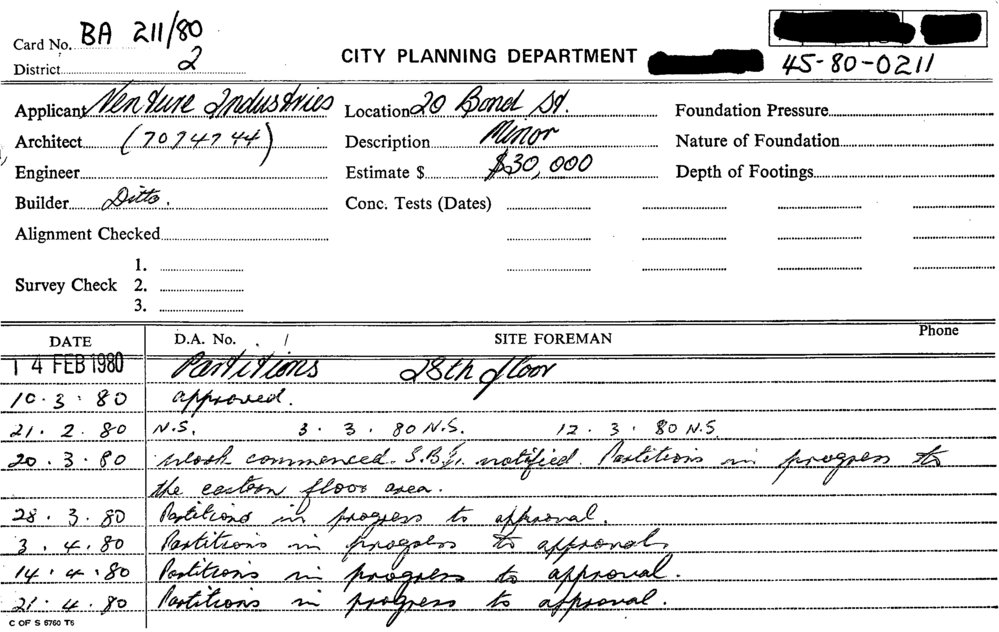 Card No. BA 211/80
District 2
CITY PLANNING DEPARTMENT
45-80-0211
Applicant Venture Industries Location 20 Bond St. Foundation Pressure
Architect (7074744) Description Minor Nature of Foundation
Engineer Estimate $ $30,000 Depth of Footings
Builder Ditto. Conc. Tests (Dates)
Alignment Checked
1.
Survey Check 2.
3.
DATE D.A. No. / SITE FOREMAN Phone
14 FEB 1980 Partitions 28th floor
10.3.80 approved.
21.2.80 N.S. 3.3.80 N.S. 12.3.80 N.S.
20.3.80 Work commenced. notified. Partitions in progress to
the eastern floor area.
28.3.80 Partitions in progress to approval.
3.4.80 Partitions in progress to approval.
14.4.80 Partitions in progress to approval.
21.4.80 Partitions in progress to approval.
C OF S 6760 T6